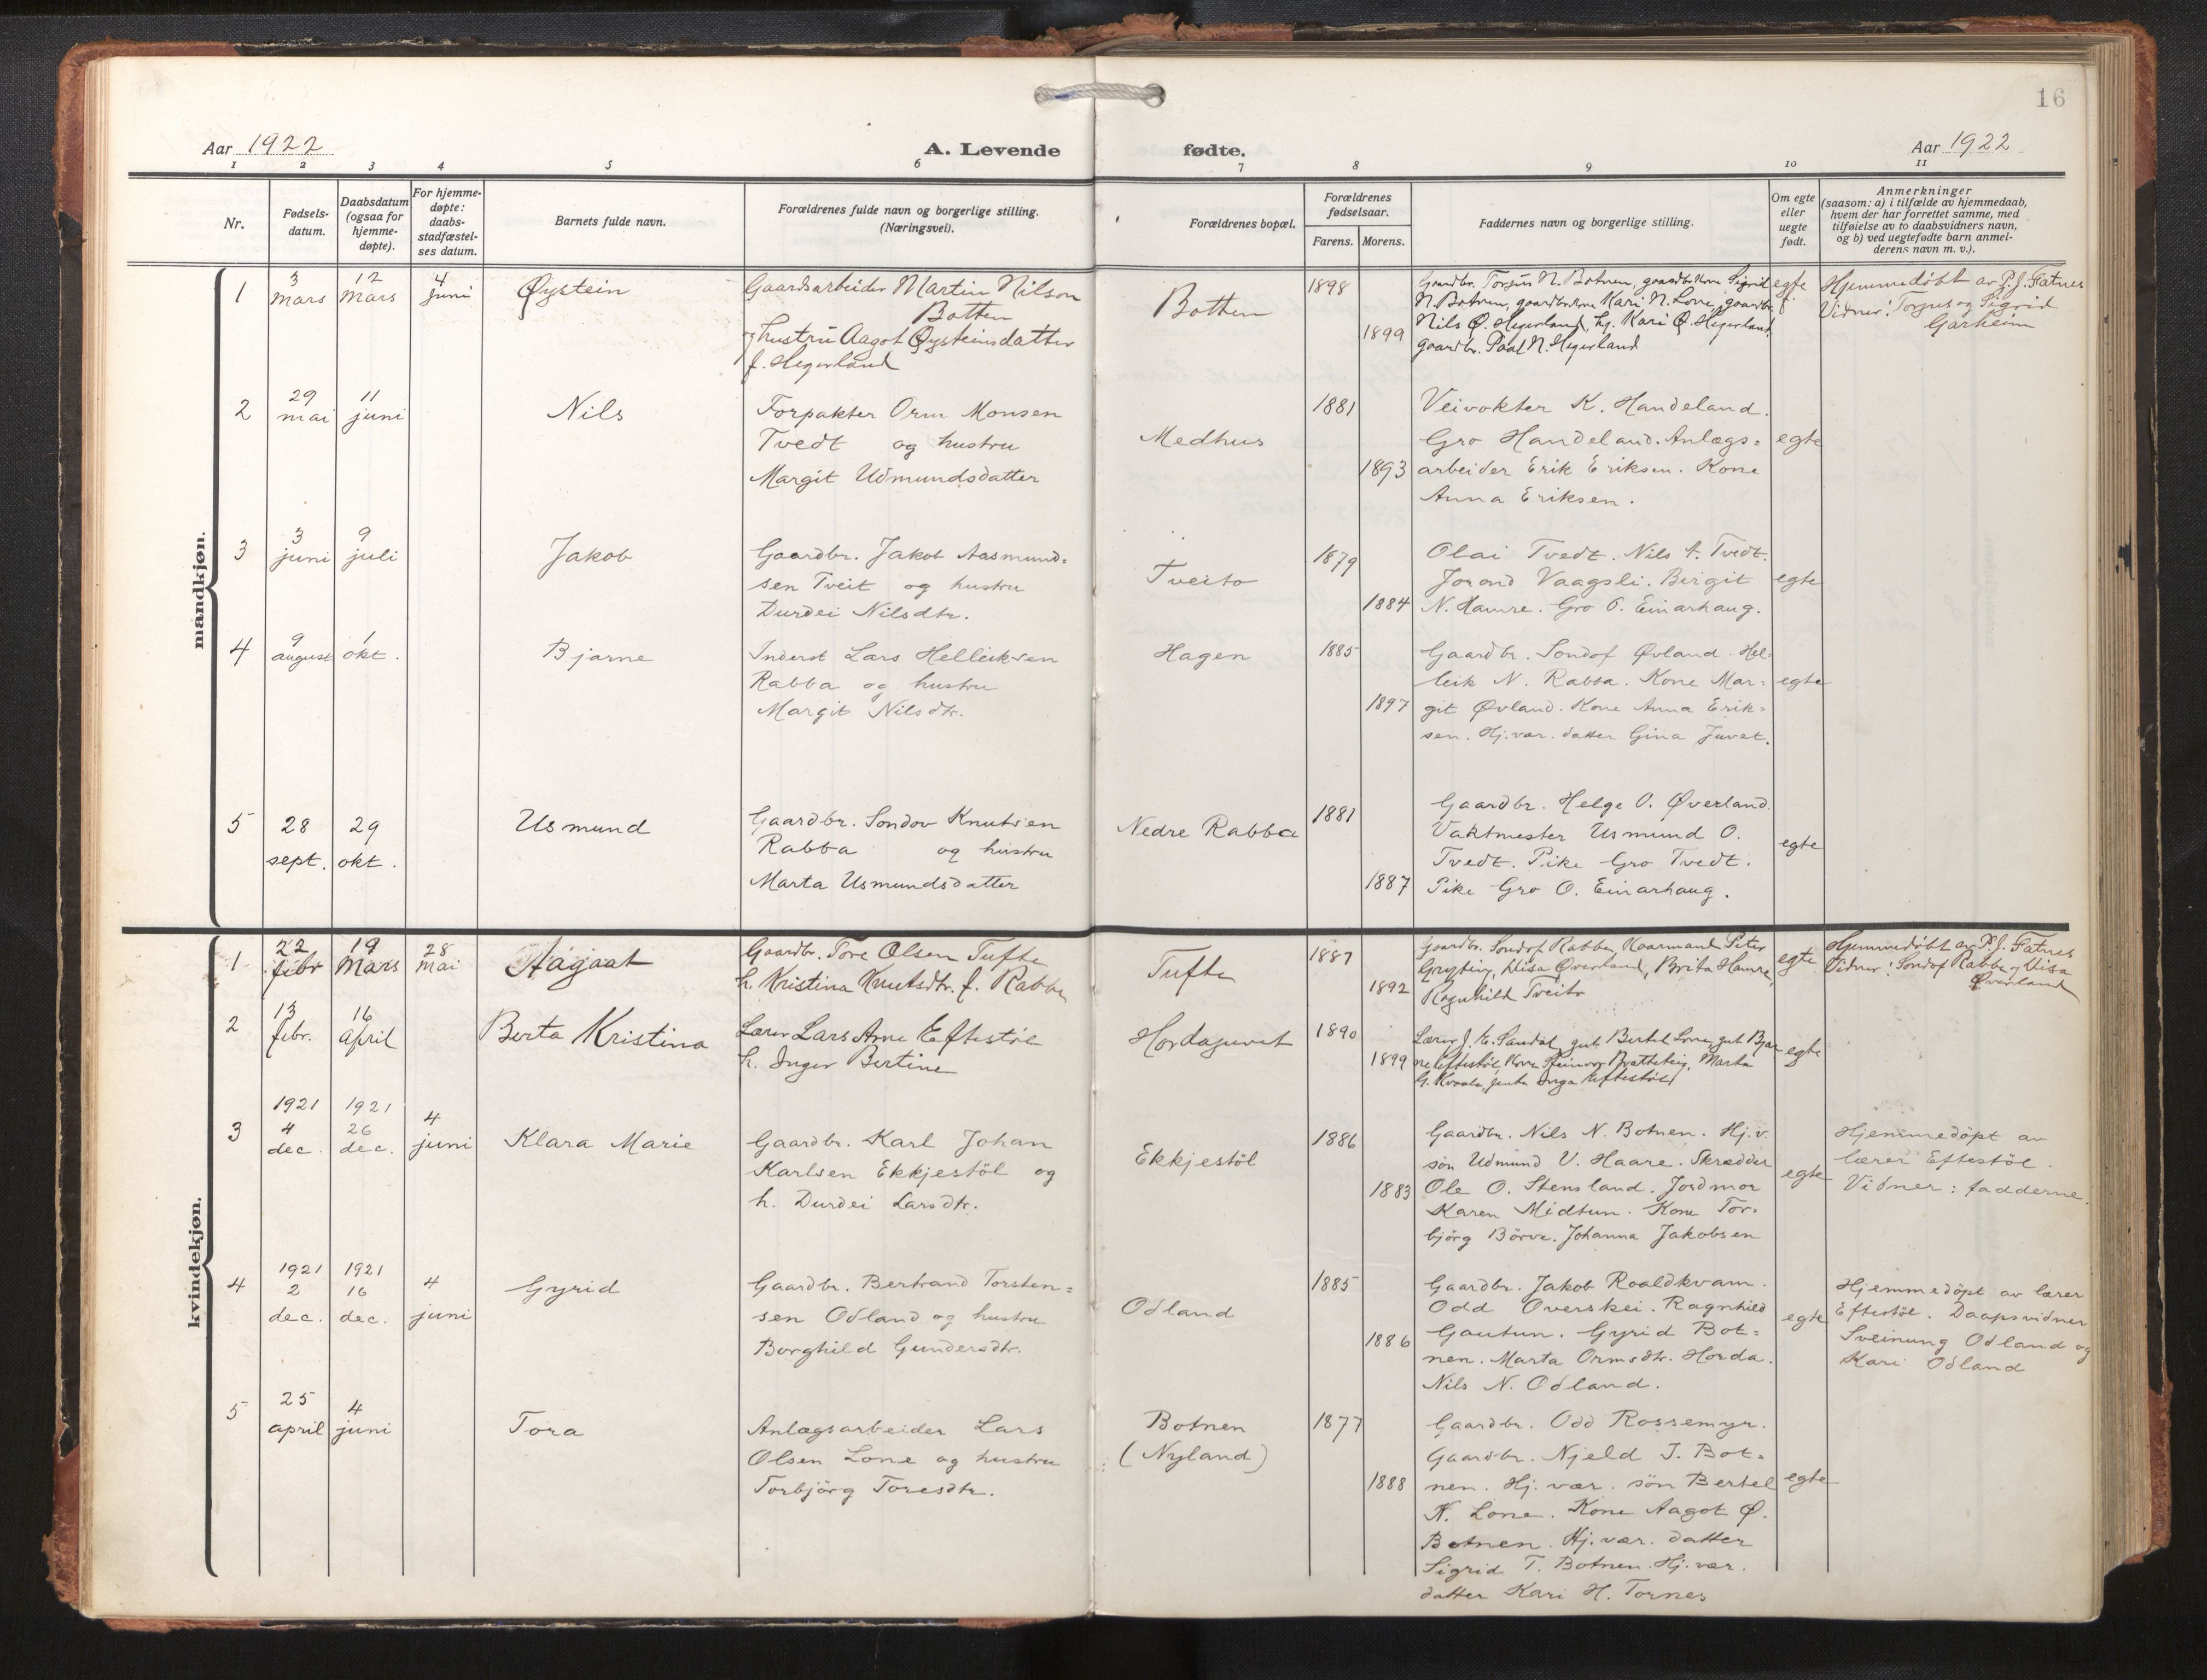 16
Aar 1922
A. Levende fødte.
Aar 1922
1 2 3 4 5 6 7 8 9 10 11
Nr.
Fødsels-
datum.
Daabsdatum
(ogsaa for
hjemme-
døpte).
For hjemme-
døpte:
daabs-
stadfæstel-
ses datum.
Barnets fulde navn.
Forældrenes fulde navn og borgerlige stilling.
(Næringsvei).
Forældrenes bopæl.
Forældrenes
fødselsaar.
Farens. Morens.
Faddernes navn og borgerlige stilling.
Om egte
eller
uegte
født.
Anmerkninger
(saasom: a) i tilfælde av hjemmedaab,
hvem der har forrettet samme, med
tilføielse av to daabsvidners navn,
og b) ved uegtefødte barn anmel-
derens navn m. v.).
mandkjøn.
1
3
mars
12
mars
4
juni
Øystein
Gaardsarbeider Martin Nilson
Botten
og hustru Aagot Øysteinsdatter
f. Hegerland
Botten
1898
1899
Gaardbr. Torgus N. Botnen, gaardbrkone Sigrid
N. Botnen, gaardbrkone Kari N. Lone, gaardbr.
Nils Ø. Hegerland, h. Kari Ø. Hegerland,
gaardbr. Paal N. Hegerland
egte
Hjemmedøbt av P. J. Fatnes
Vidner: Torgus og Sigrid
Garheim
2
29
mai
11
juni
Nils
Forpakter Orm Monsen
Tvedt og hustru
Margit Udmundsdatter
Medhus
1881
1893
Veivokter K. Handeland.
Gro Handeland. Anlægs=
arbeider Erik Eriksen. Kone
Anna Eriksen.
egte
3
3
juni
9
juli
Jakob
Gaardbr. Jakob Aasmund=
sen Tveit og hustru
Durdei Nilsdtr.
Tveito
1879
1884
Olai Tvedt. Nils A. Tvedt.
Jorond Vaagsli. Birgit
N. Hamre. Gro O. Einarhaug.
egte
4
9
august
1
okt.
Bjarne
Inderst Lars Helleiksen
Rabba og hustru
Margit Nilsdtr.
Hagen
1885
1897
Gaardbr. Sondof Øvland. Hel=
leik N. Rabba. Kone Mar=
git Øvland. Kone Anna Erik=
sen. Hj.vær. datter Gina Juvet.
egte
5
28
sept.
29
okt.
Usmund
Gaardbr. Sondov Knutsen
Rabba og hustru
Marta Usmundsdatter
Nedre Rabba
1881
1887
Gaardbr. Helge O. Øverland.
Vaktmester Usmund O.
Tvedt. Pike Gro Tvedt.
Pike Gro O. Einarhaug.
egte
kvindekjøn.
1
22
febr
19
Mars
28
mai
Aagaat
Gaardbr. Tore Olsen Tufte
h. Kristina Knutsdtr. f. Rabbe
Tufte
1887
1892
Gaardbr. Sondof Rabbe, Peter
Gryting, Øverland, Brita Hamre,
Ragnhild Tveito
egte
Hjemmedøbt av P. J. Fatnes
Vidner: Sondof Rabbe og
Øverland
2
13
febr.
16
april
Berta Kristina
Lærer Lars Arne Eftestøl
h. Inger Bertine
Hordajuvet
1890
1899
Lærer J. K. Sandal, gut Bertel Lone, gut Bjar
ne Eftestøl, Kone Brattebeig, Marta
G. Kvaale, jenta Inga Eftestøl
egte
3
1921
4
dec.
1921
26
dec.
4
juni
Klara Marie
Gaardbr. Karl Johan
Karlsen Ekkjestöl og
h. Durdei Larsdtr.
Ekkjestöl
1886
1883
Gaardbr. Nils N. Botnen. Hj.v.
søn Udmund V. Haare. Skrædder
Ole O. Stensland. Jordmor
Karen Midtun. Kone Tor=
björg Börve. Johanna Jakobsen
egte
Hjemmedöpt av
lærer Eftestöl.
Vidner: fadderne.
4
1921
2
dec.
1921
16
dec.
4
juni
Gyrid
Gaardbr. Bertrand Torsten=
sen Odland og hustru
Borghild Gundersdtr.
Odland
1885
1886
Gaardbr. Jakob Roaldkvam.
Odd Overskei. Ragnhild
Gautun. Gyrid Bot=
nen. Marta Ormsdtr. Horda.
Nils N. Odland.
egte
Hjemmedöpt av lærer
Eftestöl. Daapsvidner
Sveinung Odland og
Kari Odland
5
25
april
4
juni
Tora
Anlægsarbeider Lars
Olsen Lone og hustru
Torbjörg Toresdtr.
Botnen
(Nyland)
1877
1888
Gaardbr. Odd Rossemyr.
Gaardbr. Njeld J. Bot=
nen. Hj. vær. sön Bertel
N. Lone. Kone Aagot Ø.
Botnen. Hj. vær. datter
Sigrid T. Botnen. Hj. vær.
datter Kari H. Tornes
egte